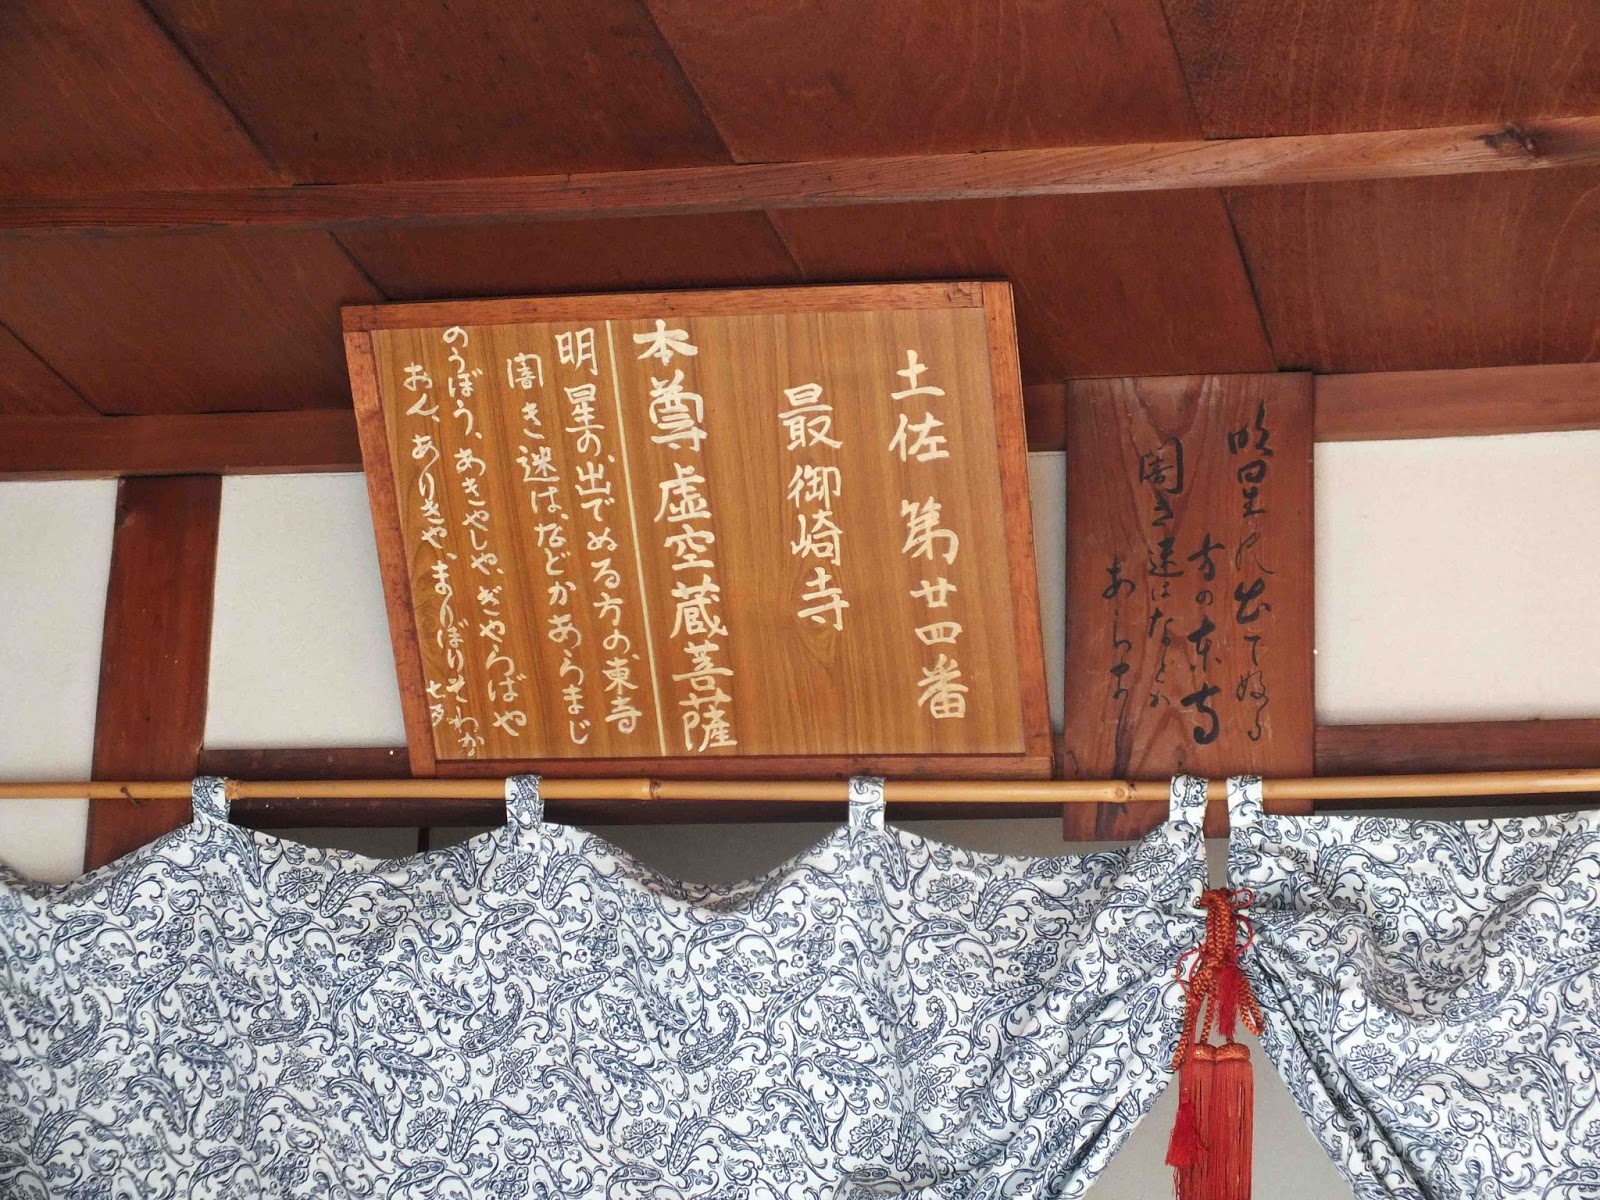 明星の出てぬる
方の東寺
闇き迷はなどか
あらま
土佐 第廿四番
最御崎寺
本尊虚空蔵菩薩
明星の、出でぬる方の、東寺
闇き迷は、などかあらまじ
のうぼう、あきやしや、ぎやらばや
おん、ありきや、まりぼりそわか